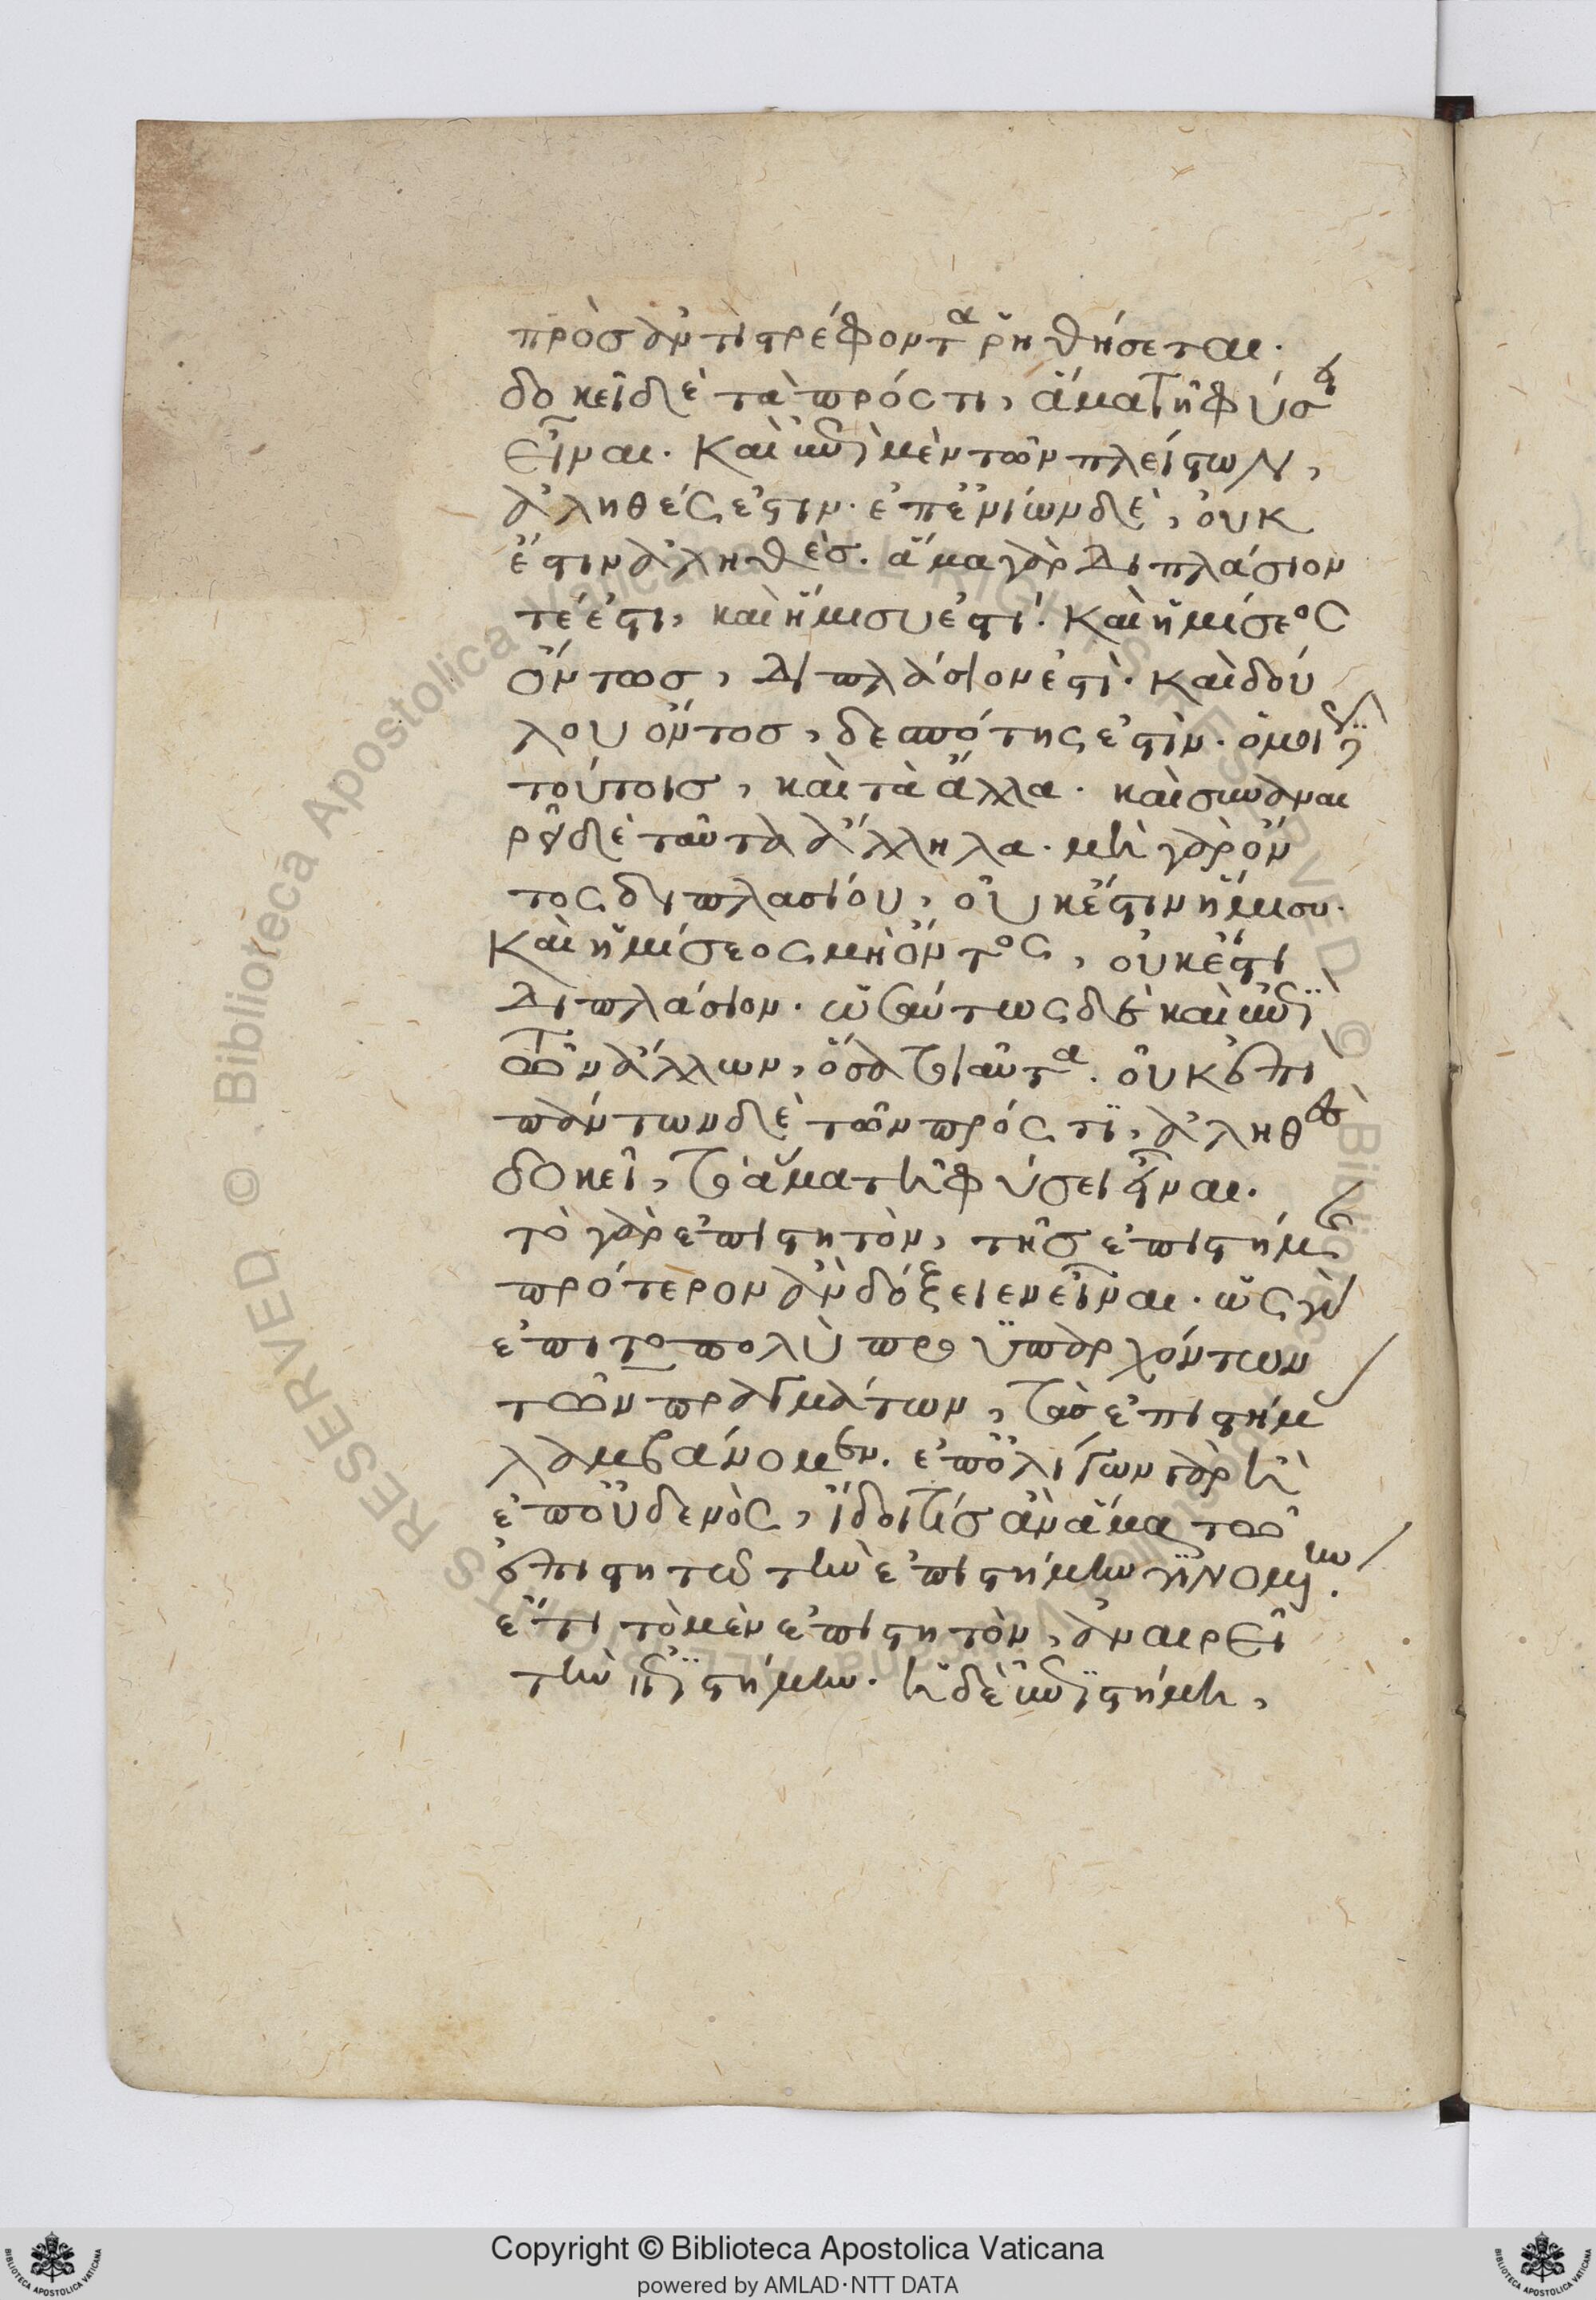 πρὸσ ἀντιστρέφοντα ῥηθήσεται.
δοκεῖ δὲ τὰ πρός τι, ἅμα τῇ φύσει
εἶναι. καὶ ἐπὶ μὲν τῶν πλείστων,
ἀληθές ἐστιν. ἐπ' ἐνίων δὲ, οὐκ
ἔστιν ἀληθὲσ. ἅμα γὰρ διπλάσιον
τέ ἐστι, καὶ ἥμισυ ἐστί. καὶ ἡμίσεος
ὄντοσ, διπλάσιον ἐστὶ. καὶ δού
λου ὄντοσ, δεσπότης ἐστὶν. ὁμοίως δὲ
τούτοισ, καὶ τὰ ἄλλα. καὶ συναναι
ρεῖ δὲ ταῦτα ἄλληλα. μὴ γὰρ ὄν
τος διπλασίου, οὐκ ἔστιν ἥμισυ.
καὶ ἡμίσεος μὴ ὄντος, οὐκ ἔστι
διπλάσιον. ὡσαύτως δὲ καὶ ἐπὶ
τῶν ἄλλων, ὅσα τοιαῦτα. οὐκ ἐπὶ
πάντων δὲ τῶν πρός τι, ἀληθὲς
δοκεῖ, τὸ ἅμα τῇ φύσει εἶναι.
τὸ γὰρ ἐπιστητὸν, τῆσ ἐπιστήμης
πρότερον ἂν δόξειεν εἶναι. ὡς γὰρ
ἐπι το πολὺ προϋπαρχόντων
τῶν πραγμάτων, τὰσ ἐπιστήμας
λαμβάνομεν. ἐπ' ὀλίγων γὰρ ἢ
ἐπ' οὐδενὸς, ἴδοι τίσ ἂν ἅμα τῶ
ἐπιστητῶ τὴν ἐπιστήμην γινομένην.
ἔτι τὸ μὲν ἐπιστητὸν, ἀναιρεῖ
τὴν ἐπιστήμην. ἡ δὲ ἐπιστήμη,
Copyright © Biblioteca Apostolica Vaticana
powered by AMLAD·NTT DATA